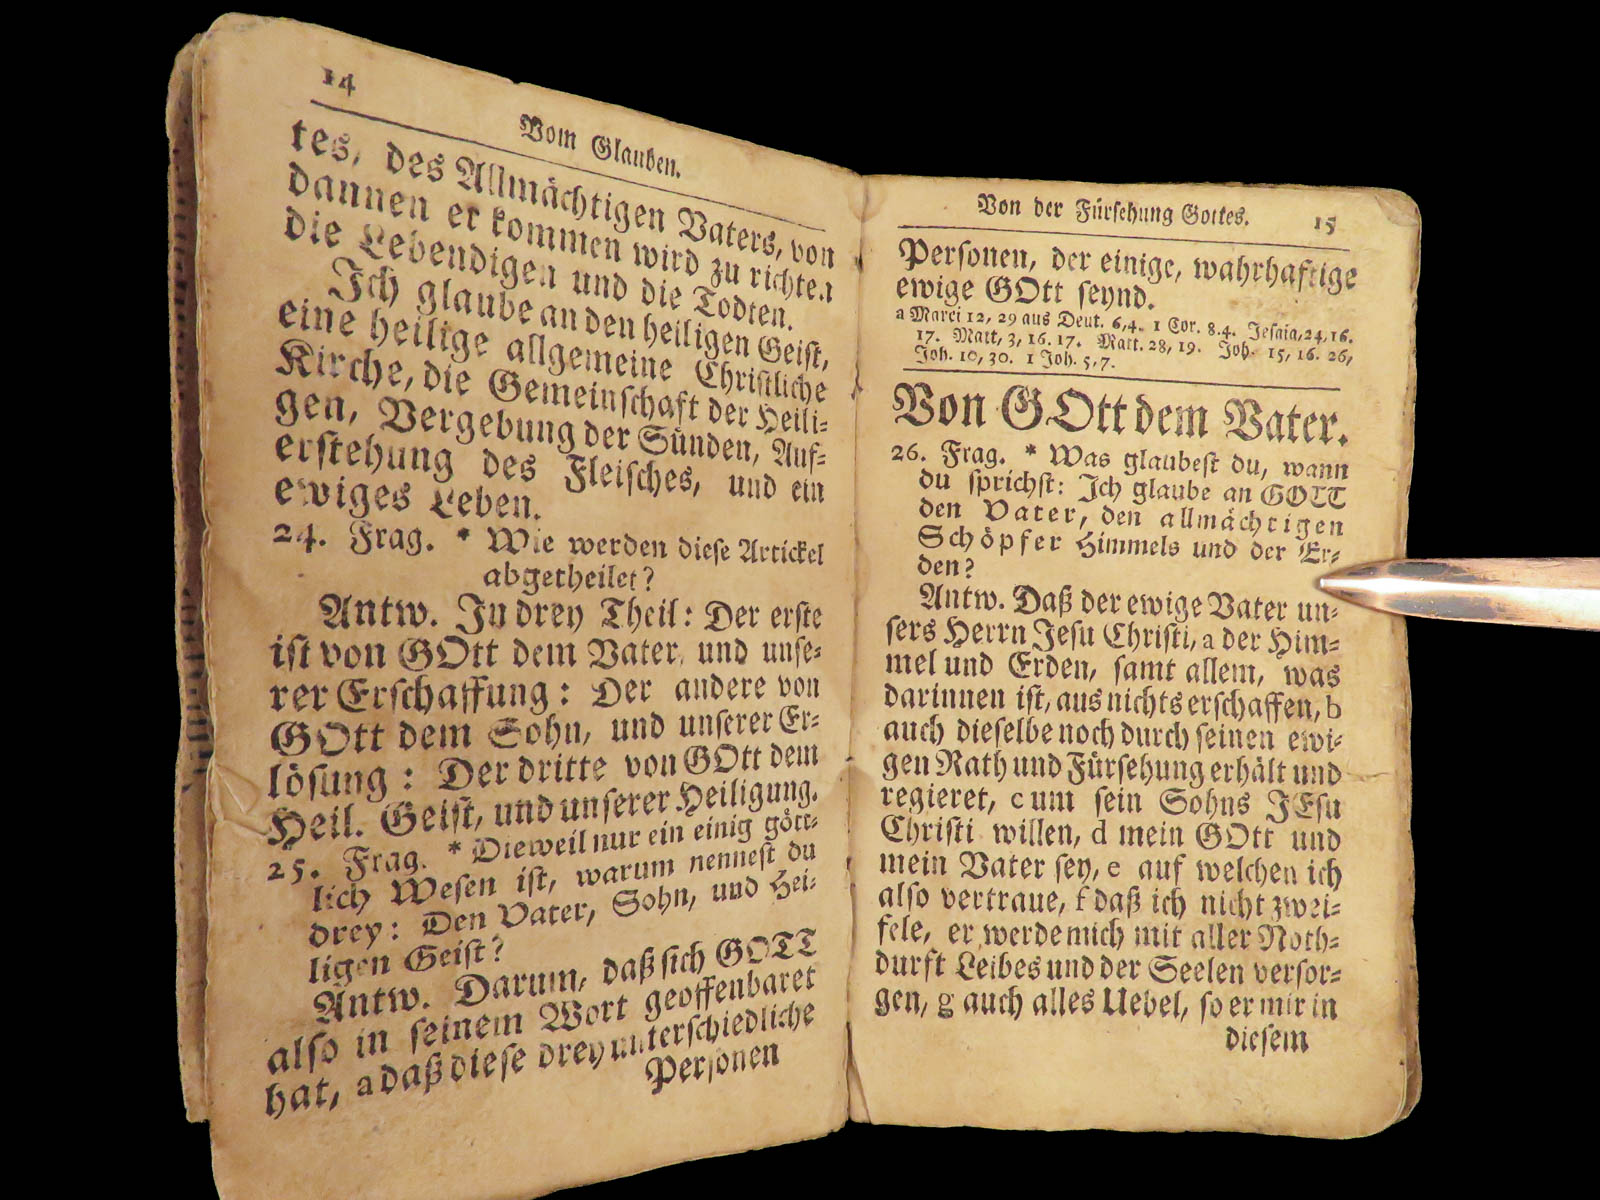 14
Vom Glauben.
tes, des Allmächtigen Vaters, von
dannen er kommen wird zu richten
die Lebendigen und die Todten.
Ich glaube an den heiligen Geist,
eine heilige allgemeine Christliche
Kirche, die Gemeinschaft der Heili-
gen, Vergebung der Sünden, Auf-
erstehung des Fleisches, und ein
ewiges Leben.
24. Frag. * Wie werden diese Artickel
abgetheilet?
Antw. In drey Theil: Der erste
ist von GOtt dem Vater, und unse-
rer Erschaffung: Der andere von
GOtt dem Sohn, und unserer Er-
lösung: Der dritte von GOtt dem
Heil. Geist, und unserer Heiligung.
25. Frag. * Dieweil nur ein einig gött-
lich Wesen ist, warum nennest du
drey: Den Vater, Sohn, und Hei-
ligen Geist?
Antw. Darum, daß sich GOTT
also in seinem Wort geoffenbaret
hat, a daß diese drey unterschiedliche
Personen
Von der Fürsehung Gottes. 15
Personen, der einige, wahrhaftige
ewige GOtt seynd.
a Marci 12, 29 aus Deut. 6,4. 1 Cor. 8.4. Jesaia,24,16.
17. Matt, 3, 16. 17. Matt. 28, 19. Joh. 15, 16. 26,
Joh. 10, 30. 1 Joh. 5,7.
Von GOtt dem Vater.
26. Frag. * Was glaubest du, wann
du sprichst: Ich glaube an GOTT
den Vater, den allmächtigen
Schöpfer Himmels und der Er-
den?
Antw. Daß der ewige Vater un-
sers Herrn Jesu Christi, a der Him-
mel und Erden, samt allem, was
darinnen ist, aus nichts erschaffen, b
auch dieselbe noch durch seinen ewi-
gen Rath und Fürsehung erhält und
regieret, c um sein Sohns JEsu
Christi willen, d mein GOtt und
mein Vater sey, e auf welchen ich
also vertraue, f daß ich nicht zwei-
fele, er werde mich mit aller Noth-
durft Leibes und der Seelen versor-
gen, g auch alles Uebel, so er mir in
diesem